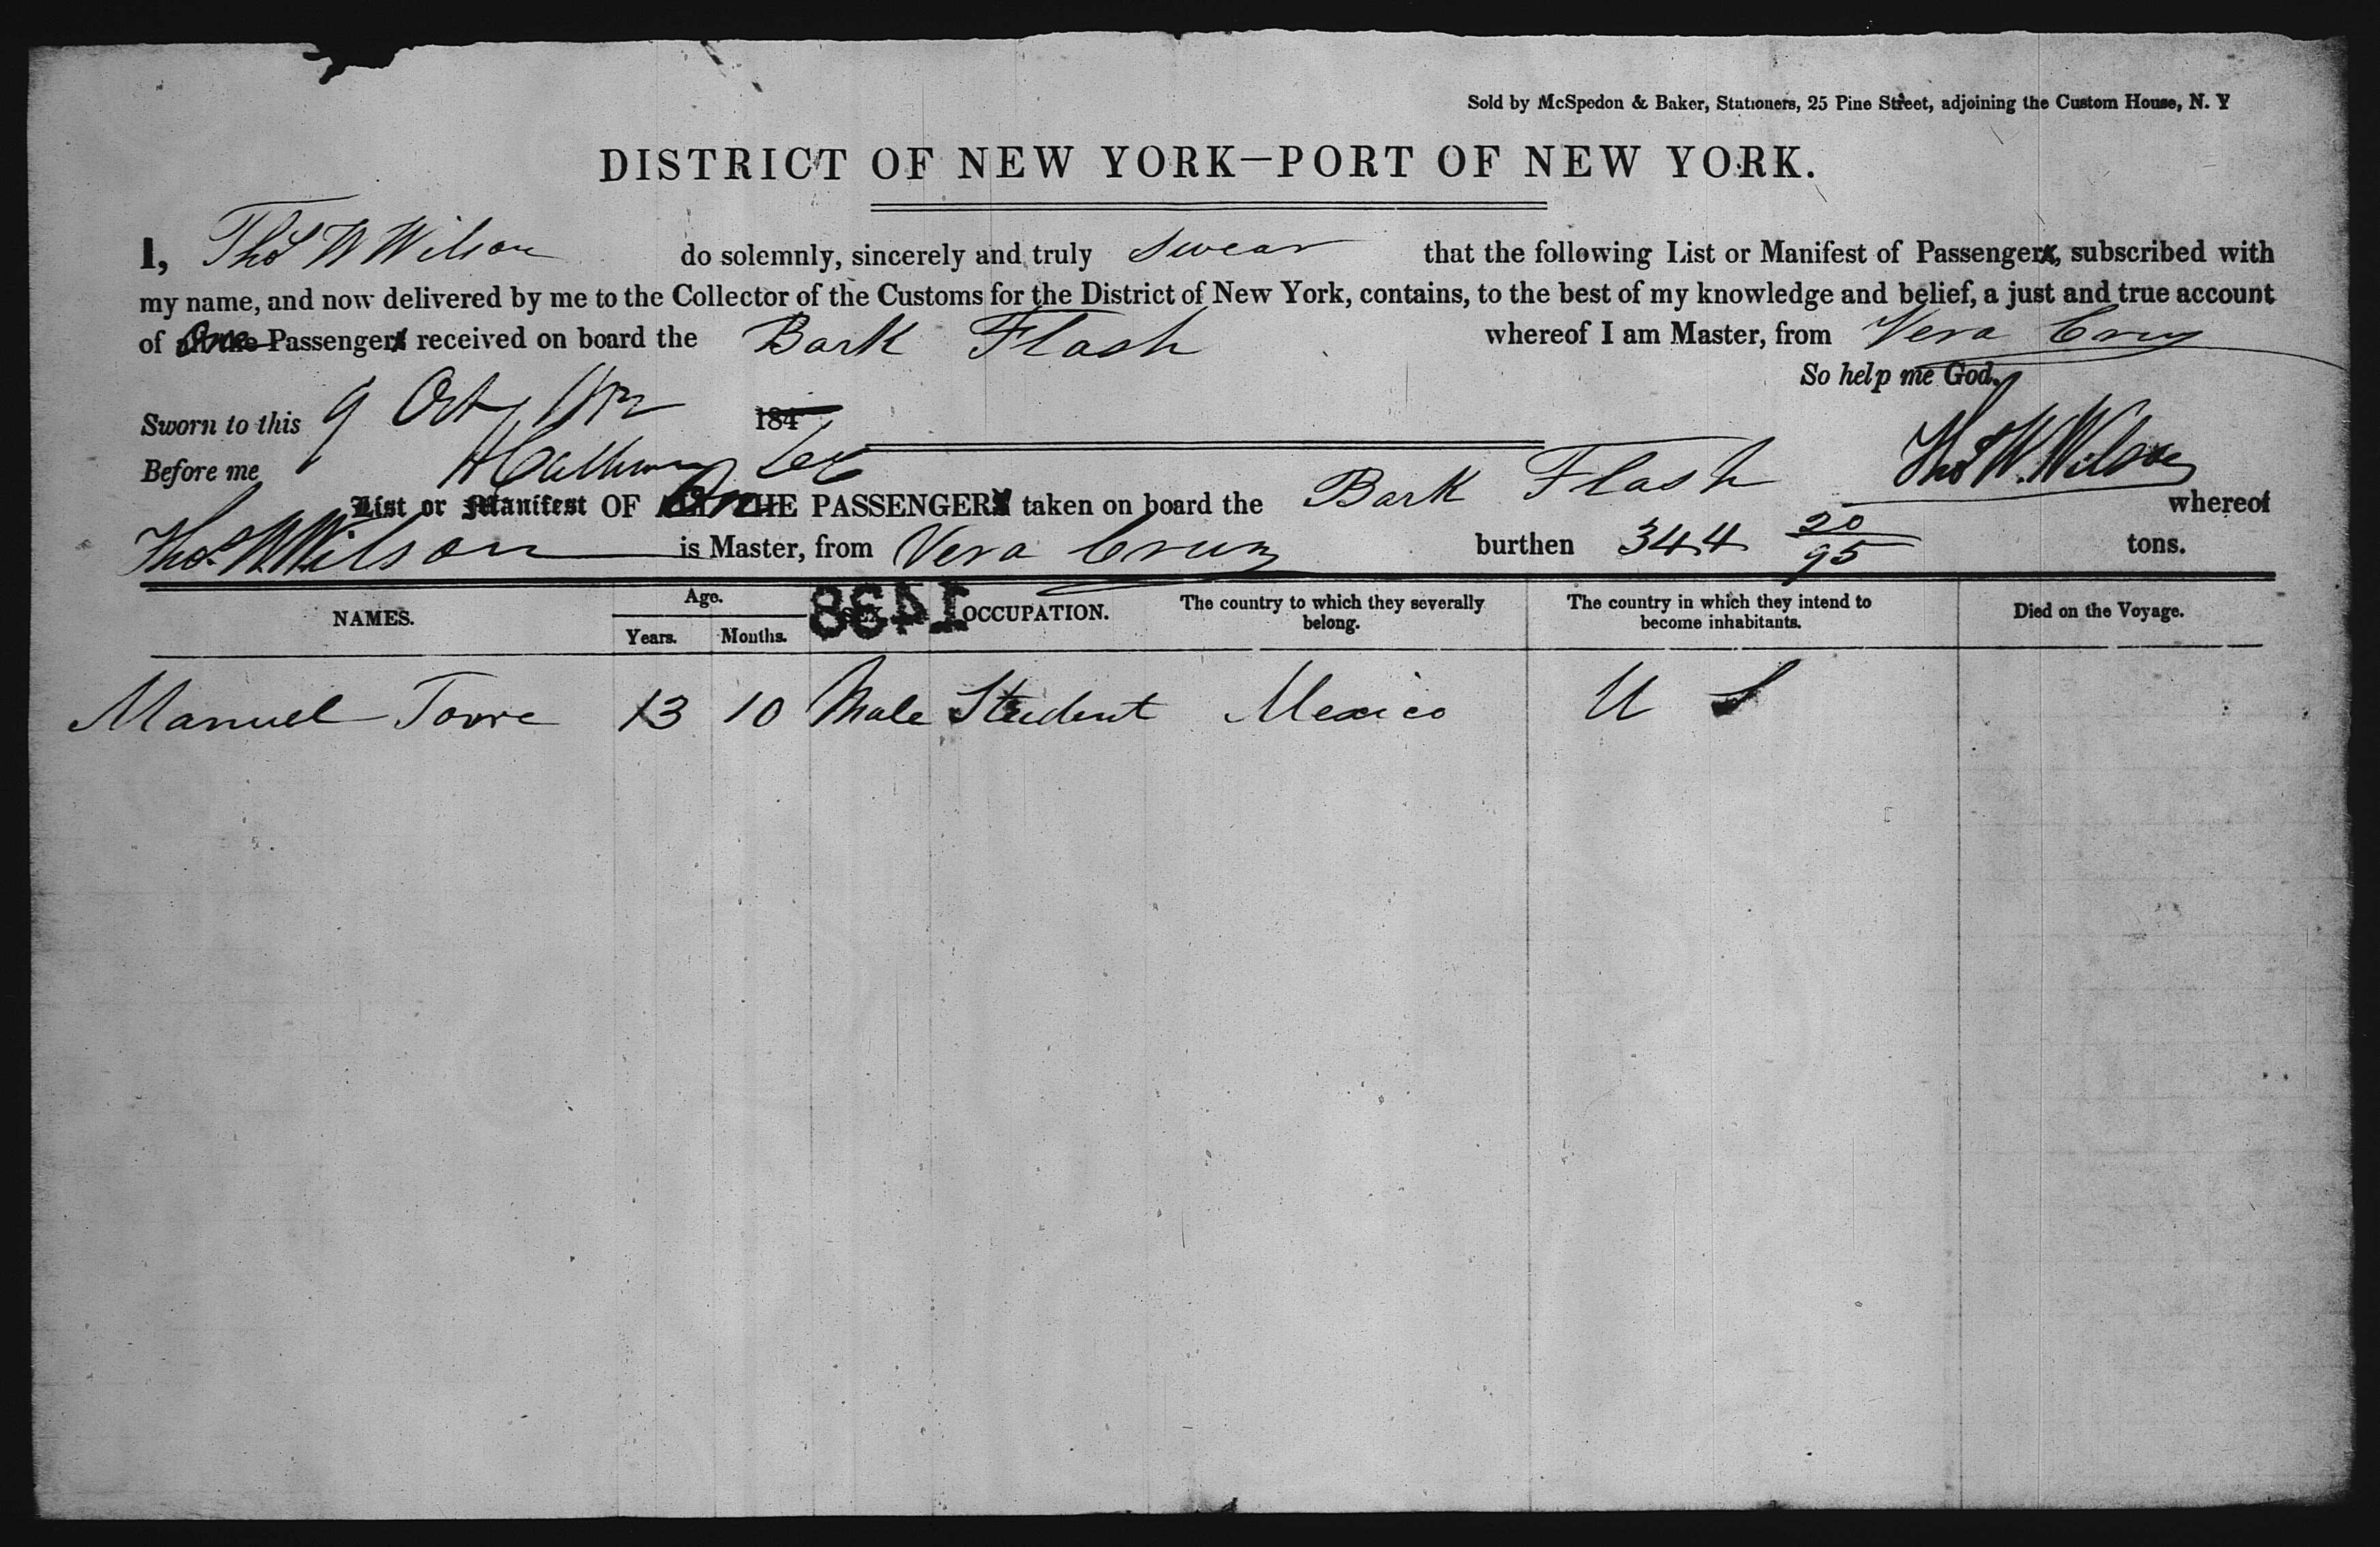 Sold by McSpedon & Baker, Stationers, 25 Pine Street, adjoining the Custom House, N. Y
DISTRICT OF NEW YORK—PORT OF NEW YORK.
I, Thos W Wilson do solemnly, sincerely and truly swear that the following List or Manifest of Passengers, subscribed with
my name, and now delivered by me to the Collector of the Customs for the District of New York, contains, to the best of my knowledge and belief, a just and true account
of One Passenger received on board the Bark Flash whereof I am Master, from Vera Cruz
So help me God.
Sworn to this 9 Oct 184
Before me Thos W. Wilson
List or Manifest OF One PASSENGER taken on board the Bark Flash whereof
Thos W Wilson is Master, from Vera Cruz burthen 344 20/95 tons.
NAMES. Age. Years. Months. SEX OCCUPATION. The country to which they severally belong. The country in which they intend to become inhabitants. Died on the Voyage.
1438
Manuel Torre 13 10 Male Student Mexico U S